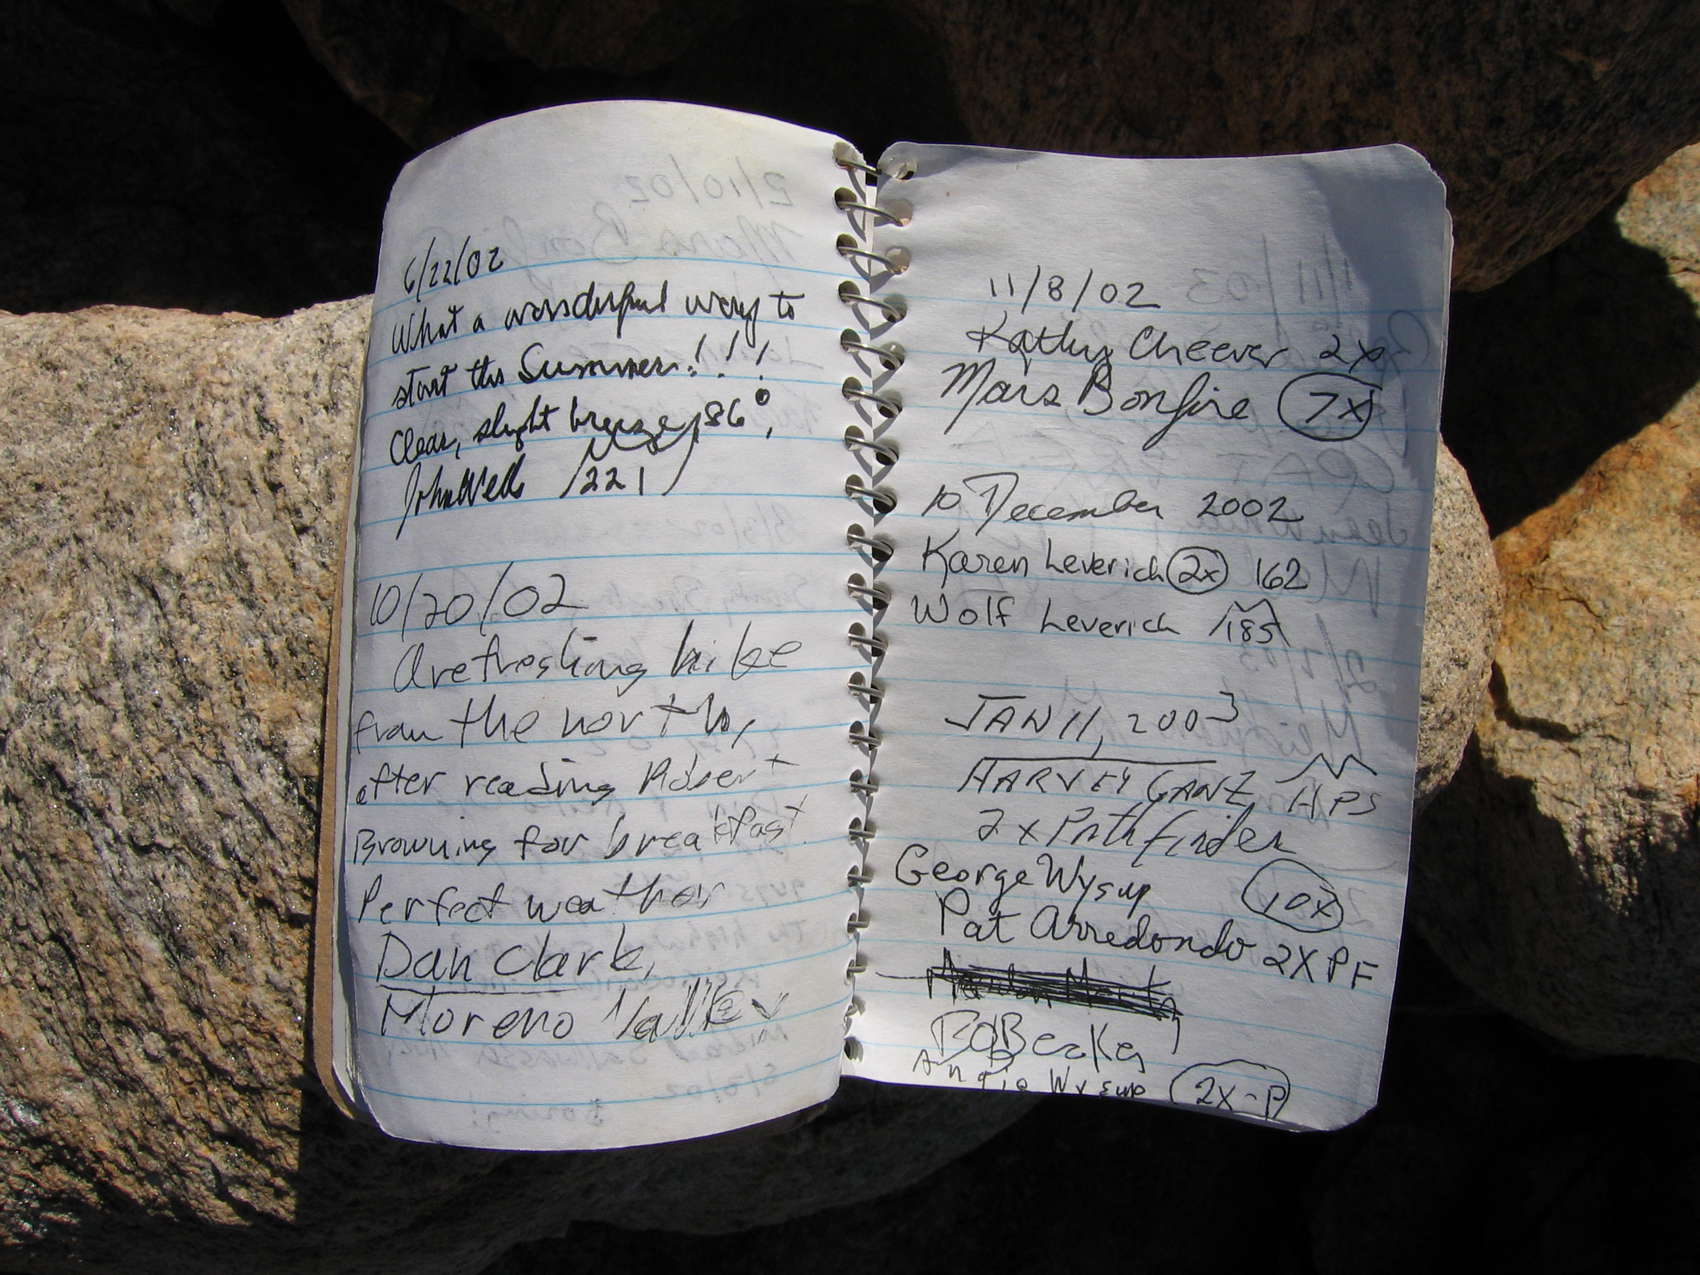 6/22/02
What a wonderful way to
start the Summer!!!
Clear, slight breeze, 86°,
John Wells 221
10/20/02
A refreshing hike
from the north,
after reading Robert
Browning for breakfast.
Perfect weather
Dan Clark,
Moreno Valley
11/8/02
Kathy Cheever 2x
Mars Bonfire 7x
10 December 2002
Karen Leverich 2x 162
Wolf Leverich 185
JAN 11, 2003
HARVEY GANZ HPS
2x Pathfinder
George Wysup 10x
Pat Arredondo 2X PF
Bob Beaks
Angie Wysup 2X-P